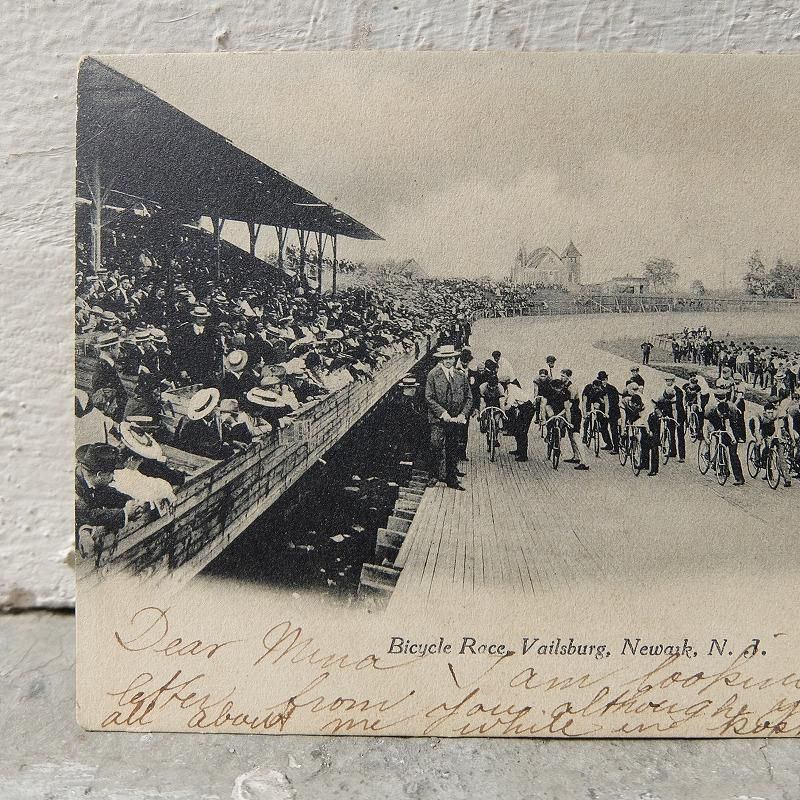 Bicycle Race, Vailsburg, Newark, N. J.
Dear Mina I am looking
letter from you although
all about me while in